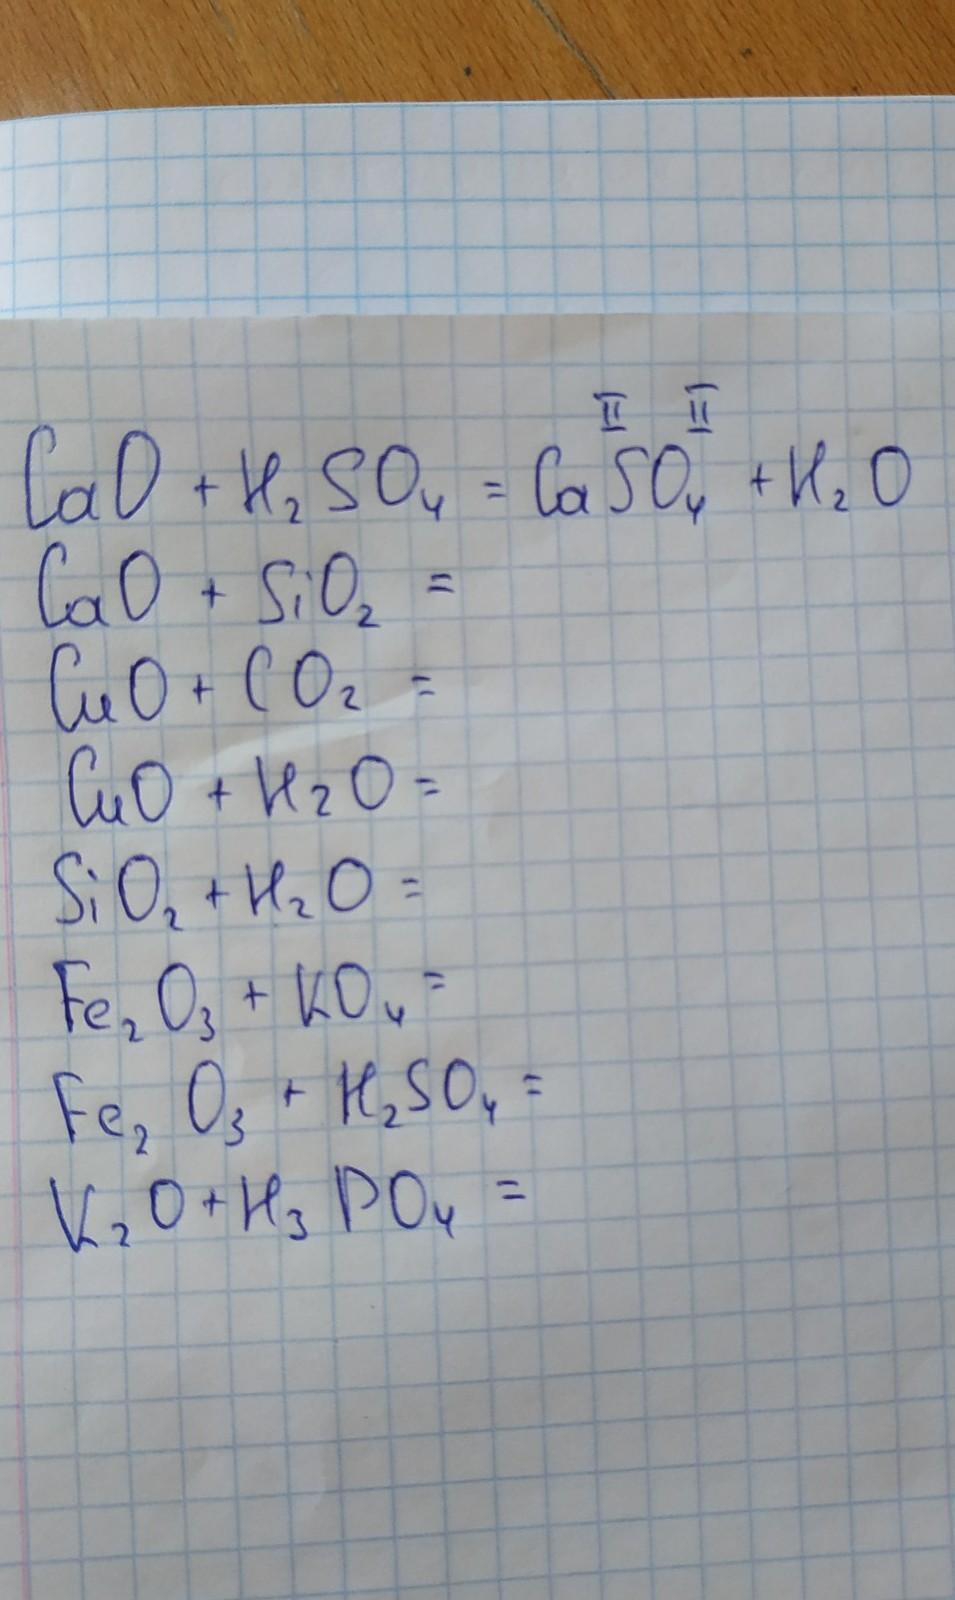 II II
CaO + H₂SO₄ = CaSO₄ + H₂O
CaO + SiO₂ =
CuO + CO₂ =
CuO + H₂O =
SiO₂ + H₂O =
Fe₂O₃ + KO₄ =
Fe₂O₃ + H₂SO₄ =
K₂O + H₃PO₄ =